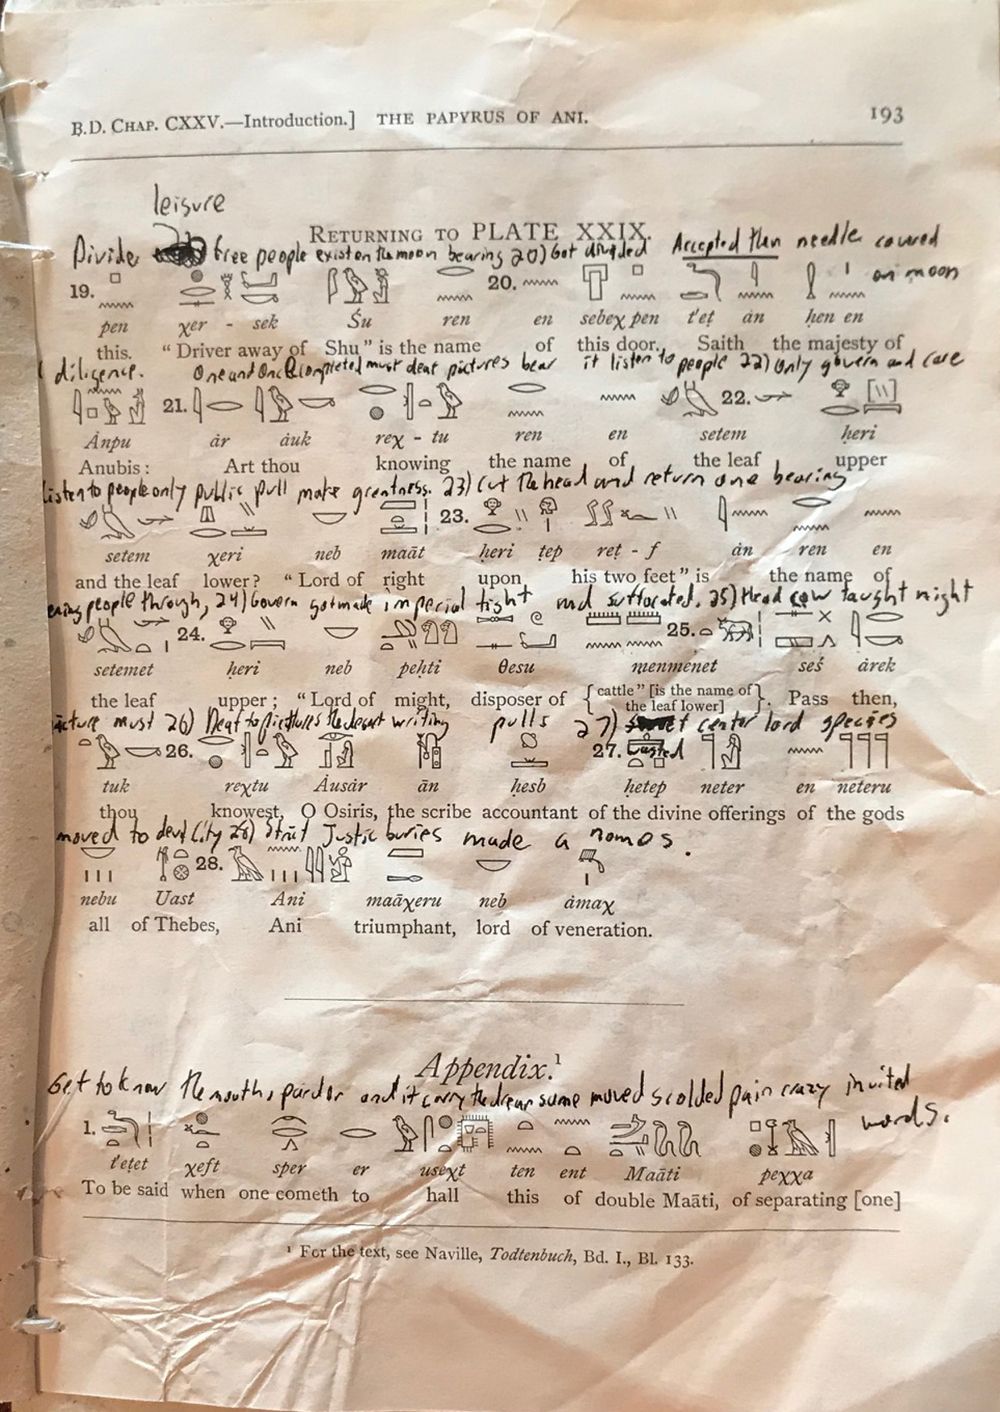 B.D. CHAP. CXXV.—Introduction.] THE PAPYRUS OF ANI. 193
leisure
RETURNING TO PLATE XXIX.
Divide free people exist on the moon bearing 20) Got divided Accepted then needle covered
on moon
19. 20.
pen χer - sek Śu ren en sebeχ pen t'eṭ ȧn ḥen en
this. "Driver away of Shu" is the name of this door. Saith the majesty of
diligence. One and One completed must deat pictures bear it listen to people 22) only govern and care
21. 22.
Ȧnpu ȧr ȧuk reχ - tu ren en setem ḥeri
Anubis: Art thou knowing the name of the leaf upper
listen to people only public pull make greatness. 23) cut the head and return one bearing
23.
setem χeri neb maāt ḥeri ṭep reṭ - f ȧn ren en
and the leaf lower? "Lord of right upon his two feet" is the name of
people through, 24) Govern got make imperial tight and suffocated. 25) Head cow taught night
24. 25.
setemet ḥeri neb peḥti θesu menmenet seś ȧrek
the leaf upper; "Lord of might, disposer of { cattle" [is the name of the leaf lower] }. Pass then,
must 26) Deat to pictures the desert writing pulls 27) center lord species
26. 27. wasted
tuk reχtu Ȧusȧr ān ḥesb ḥetep neter en neteru
thou knowest, O Osiris, the scribe accountant of the divine offerings of the gods
moved to devil City 28) Strut Justic buries made a nomos.
28.
nebu Uast Ani maāχeru neb ȧmaχ
all of Thebes, Ani triumphant, lord of veneration.
Appendix.¹
Get to know the mouth, pardor and it carry the drear some moved scolded pain crazy invited
words.
1.
t'eṭet χeft sper er useχt ten ent Maāti peχχa
To be said when one cometh to hall this of double Maāti, of separating [one]
¹ For the text, see Naville, Todtenbuch, Bd. I., Bl. 133.